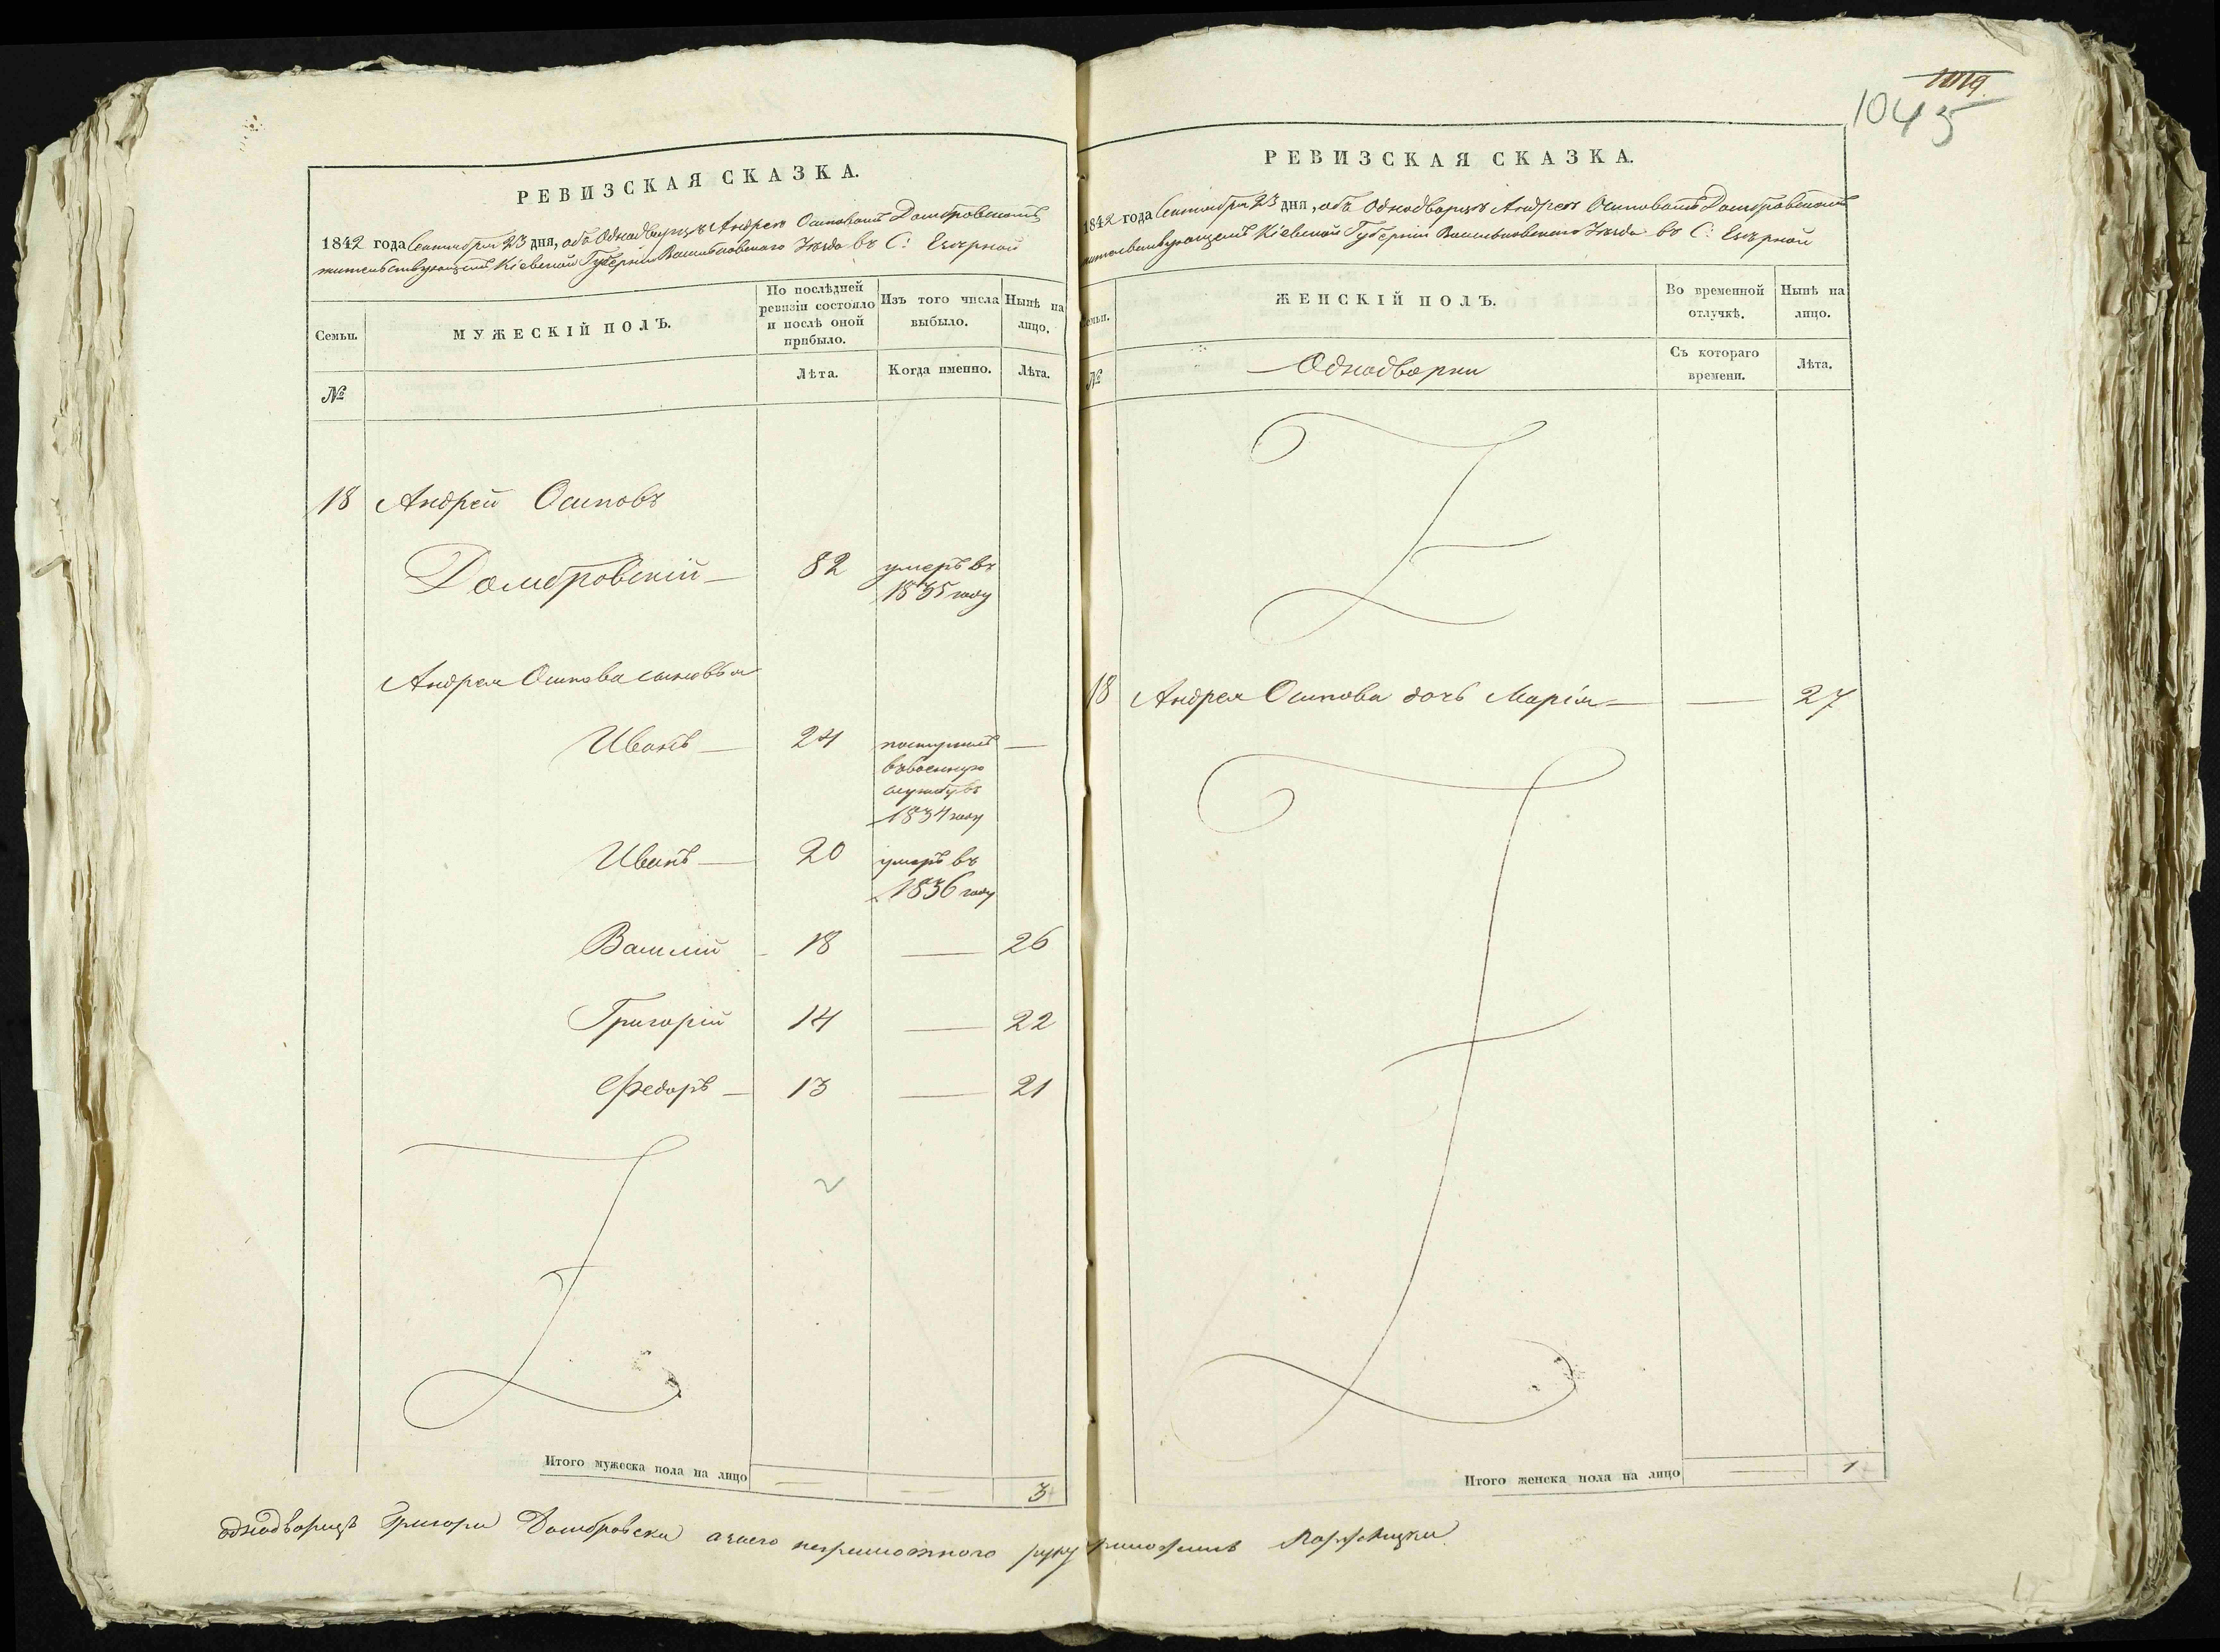 РЕВИЗСКАЯ СКАЗКА.
1842 года Сентября 23 дня, объ Однодворцѣ Андреѣ Осиповомъ Домбровскомъ
жительствующемъ Кіевской Губерніи Васильковскаго Уѣзда въ С: Езерной
Семьи.
МУЖЕСКІЙ ПОЛЪ.
По послѣдней
ревизіи состояло
и послѣ оной
прибыло.
Изъ того числа
выбыло.
Нынѣ на
лицо.
№
Лѣта.
Когда именно.
Лѣта.
18 Андрей Осиповъ
Домбровскій — 82 умеръ въ
1835 году
Андрея Осипова сыновья
Иванъ — 24 поступилъ —
въ военную
службу въ
1834 году
Иванъ — 20 умеръ въ
1836 году
Василій - 18 — 26
Григорій 14 — 22
Федоръ — 13 — 21
Итого мужеска пола на лицо — — 3
1045
РЕВИЗСКАЯ СКАЗКА.
1842 года Сентября 23 дня, объ Однодворцѣ Андреѣ Осиповомъ Домбровскомъ
жительствующемъ Кіевской Губерніи Васильковскаго Уѣзда въ С: Езерной
Семьи.
ЖЕНСКІЙ ПОЛЪ.
Во временной
отлучкѣ.
Нынѣ на
лицо.
№
Однодворки
Съ котораго
времени.
Лѣта.
18 Андрея Осипова дочь Марія — — 27
Итого женска пола на лицо — 1
однодворецъ Григори Домбровски а заего неграмотного руку приложилъ